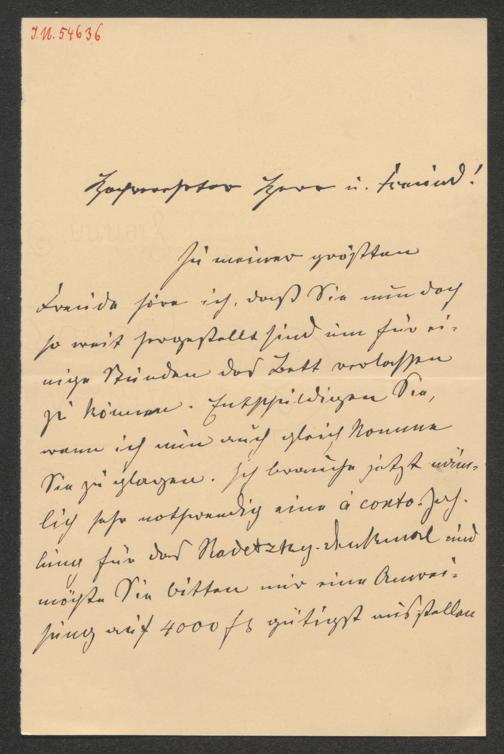 J.N. 54636
Hochverehrter Herr u. Freund!
Zu meiner größten
Freude höre ich, daß Sie nun doch
so weit hergestellt sind um für ei-
nige Stunden das Bett verlassen
zu können. Entschuldigen Sie,
wenn ich nun auch gleich komme
Sie zu plagen. Ich brauche jetzt näm-
lich sehr nothwendig eine à conto-Zah-
lung für das Radetzky-Denkmal und
möchte Sie bitten mir eine Anwei-
sung auf 4000 fl gütigst ausstellen